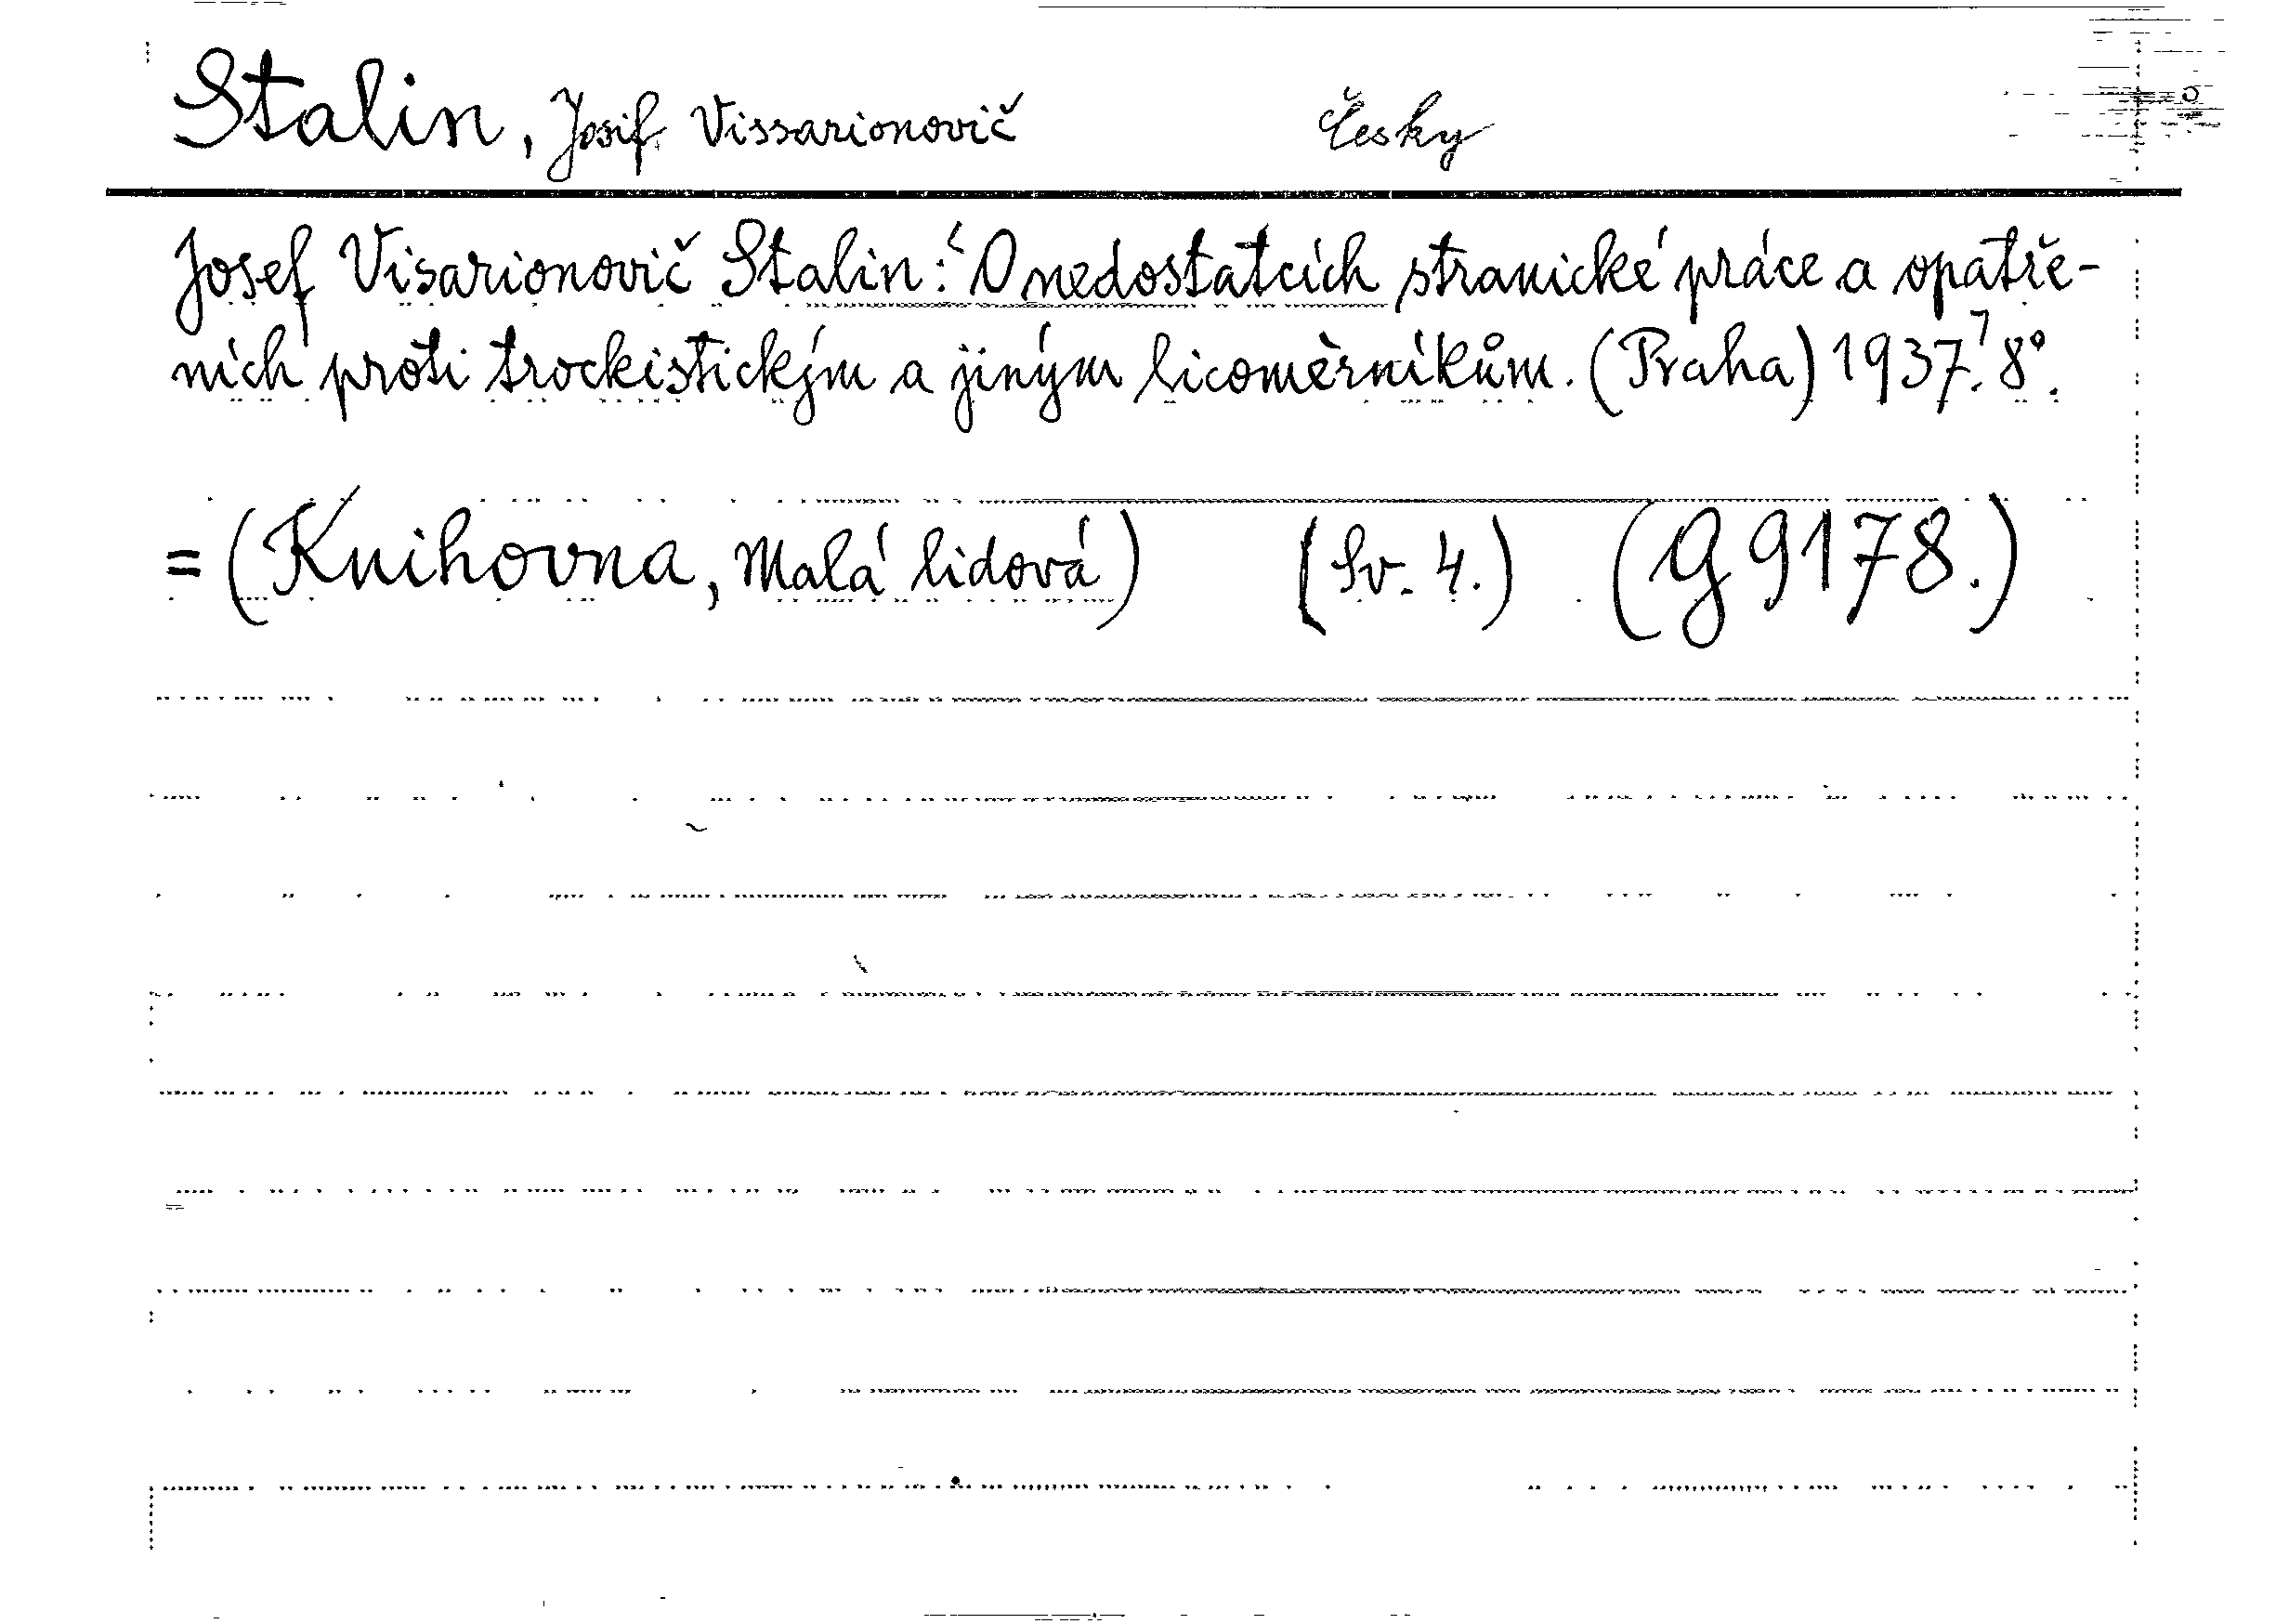 Stalin, Josif Vissarionovič Česky
Josef Visarionovič Stalin: O nedostatcích stranické práce a opatře-
ních proti trockistickým a jiným licoměrníkům. (Praha) 1937. 8°.
= (Knihovna, Malá lidová) (Sv. 4.) (G 9178.)